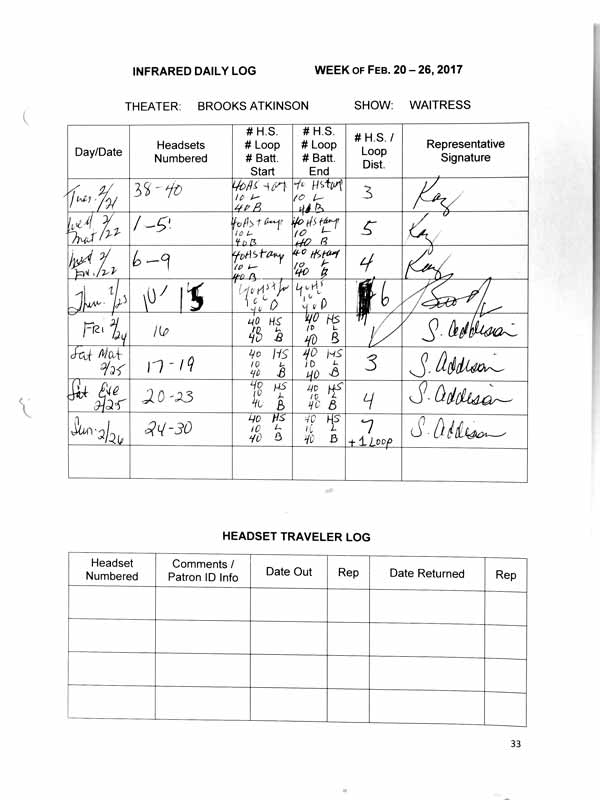 INFRARED DAILY LOG WEEK OF FEB. 20 – 26, 2017
THEATER: BROOKS ATKINSON SHOW: WAITRESS
Day/Date Headsets Numbered # H.S. # Loop # Batt. Start # H.S. # Loop # Batt. End # H.S. / Loop Dist. Representative Signature
Tues. 2/21 38-40 40 HS + amp 10 L 40 B 40 HS + amp 10 L 40 B 3 Kay
Wed Mat 2/22 1-5 40 HS + amp 10 L 40 B 40 HS + amp 10 L 40 B 5 Kay
Wed 2/22 6-9 40 HS + amp 10 L 40 B 40 HS + amp 10 L 40 B 4 Kay
Thur. 2/23 10 15 6
Fri 2/24 16 40 HS 10 L 40 B 40 HS 10 L 40 B 1 S. Addison
Sat Mat 2/25 17-19 40 HS 10 L 40 B 40 HS 10 L 40 B 3 S. Addison
Sat Eve 2/25 20-23 40 HS 10 L 40 B 40 HS 10 L 40 B 4 S. Addison
Sun. 2/26 24-30 40 HS 10 L 40 B 40 HS 10 L 40 B 7 +1 LOOP S. Addison
HEADSET TRAVELER LOG
Headset Numbered Comments / Patron ID Info Date Out Rep Date Returned Rep
33